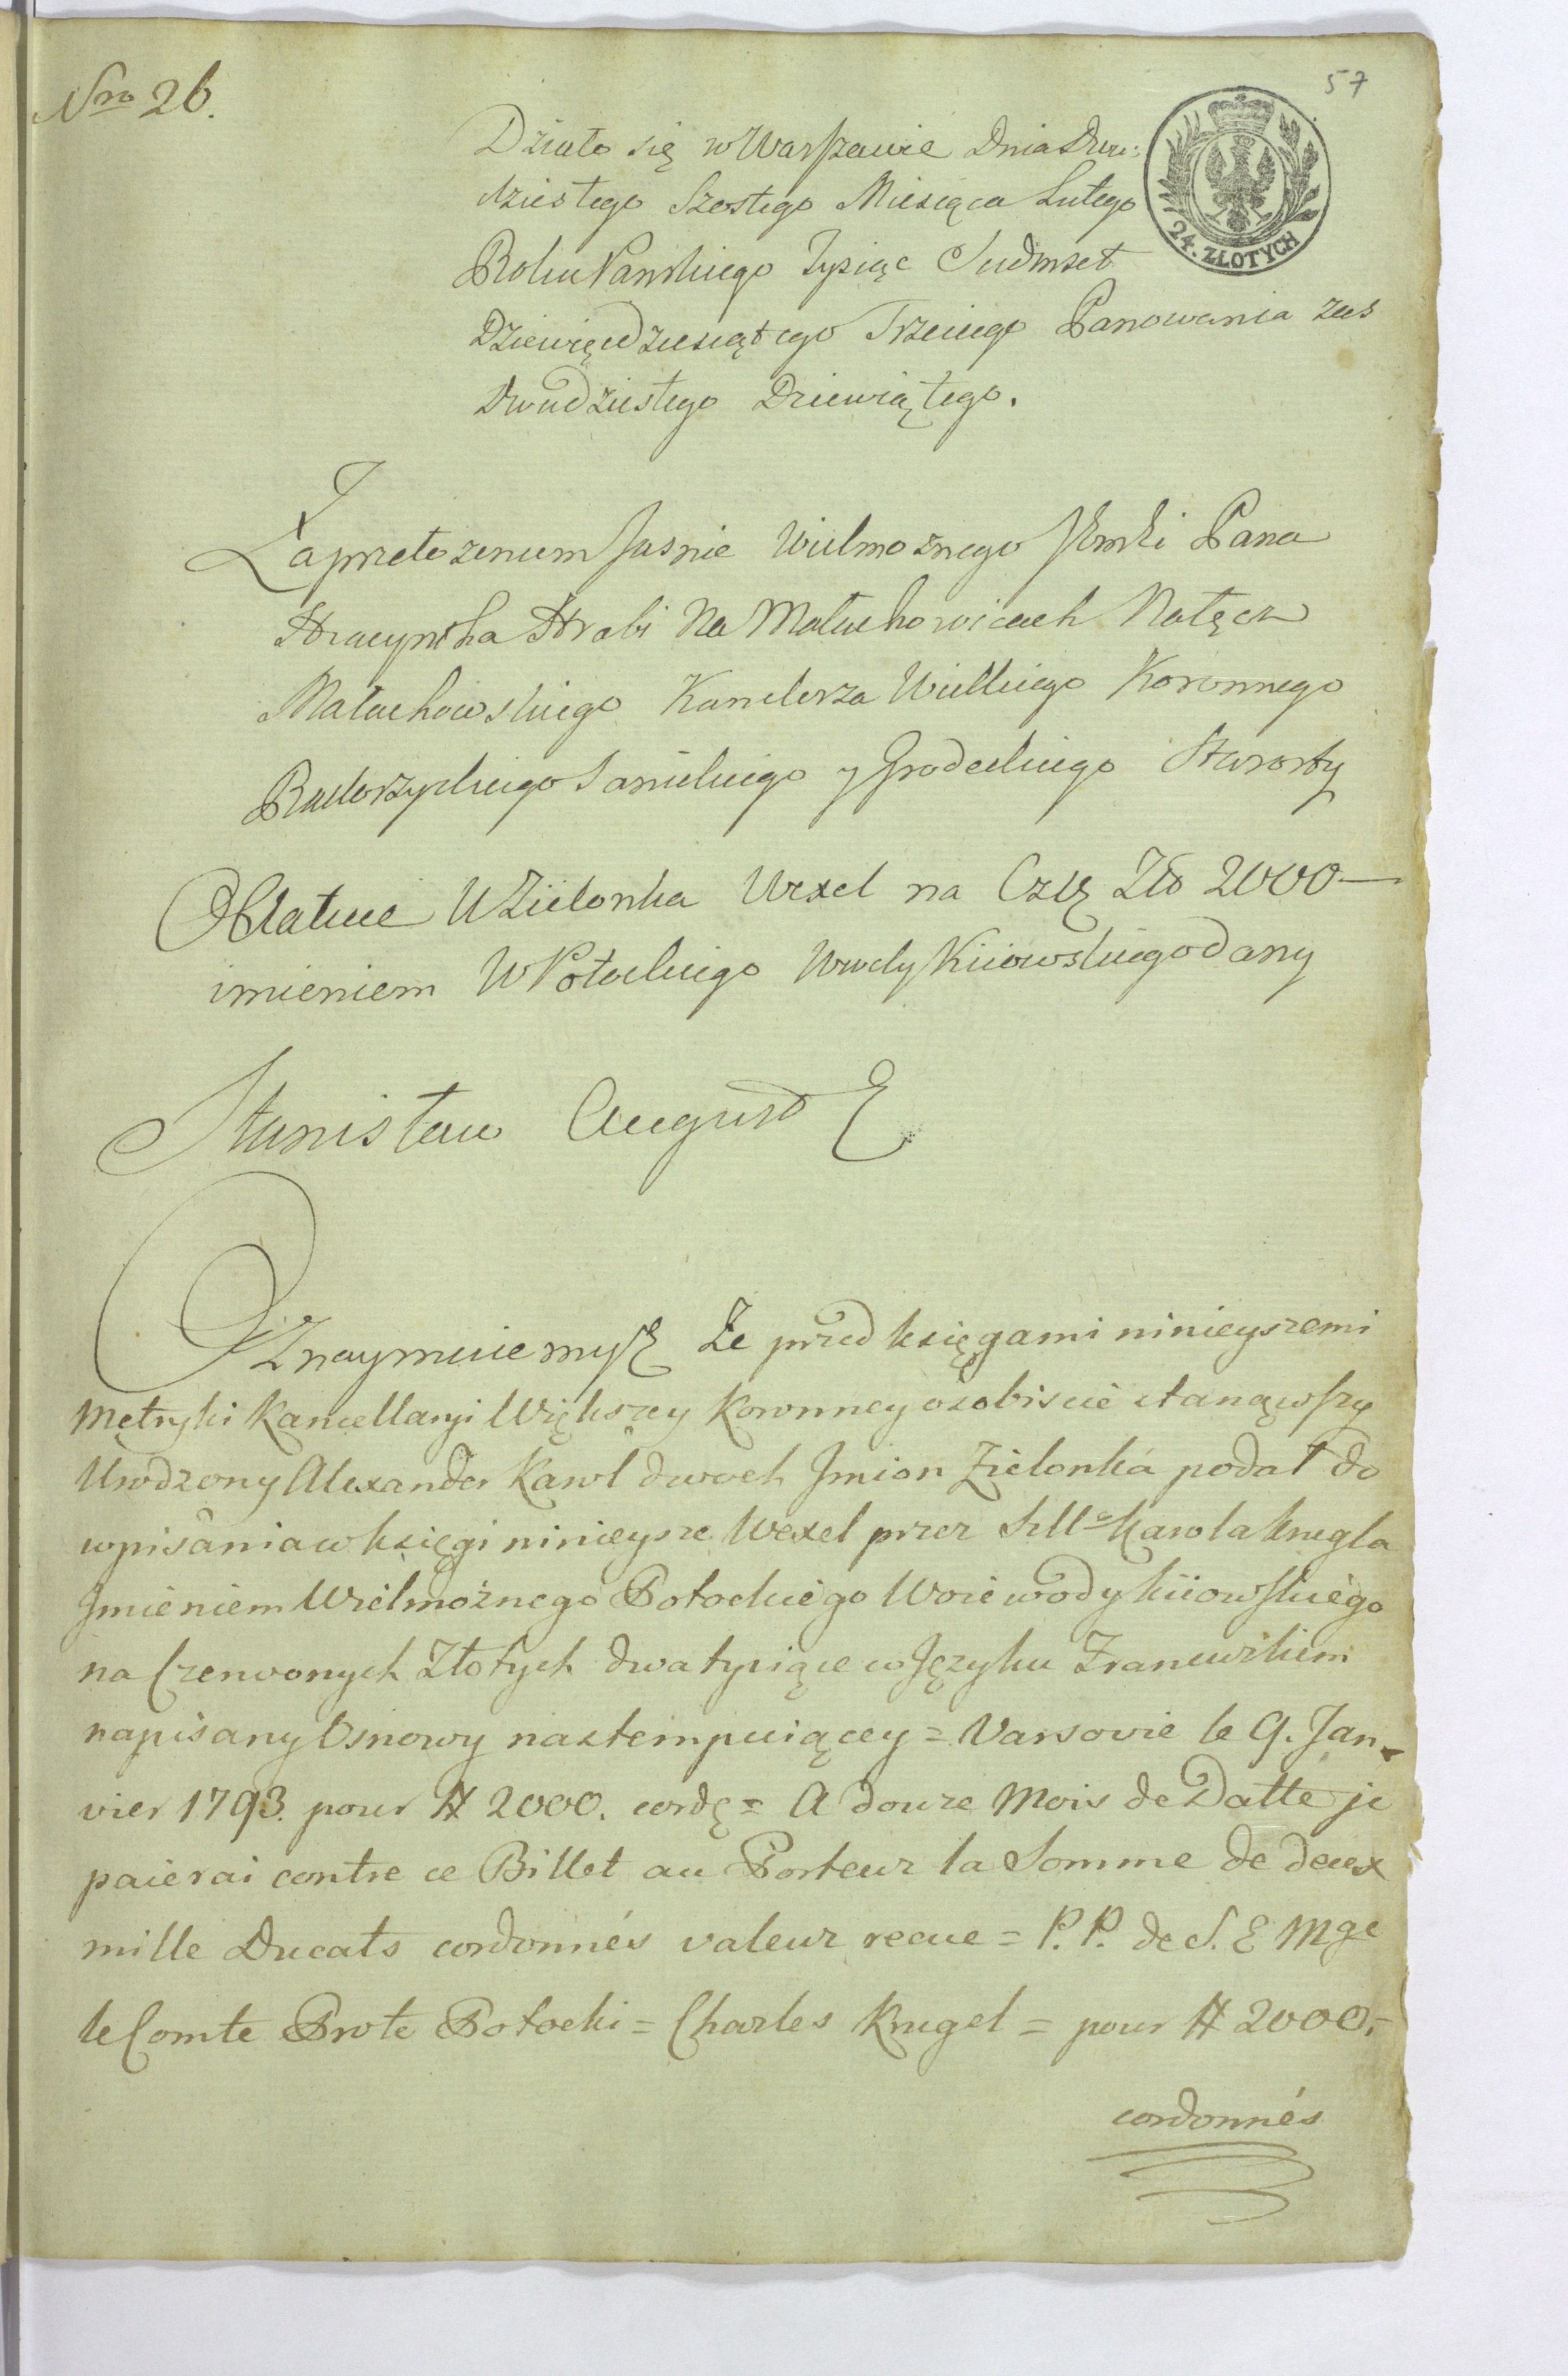 Nro 26.
57
24. ZŁOTYCH
Działo się w Warszawie Dnia Dwu:
dziestego Szostego Miesiąca Lutego
Roku Panskiego Tysiąc Siedmset
Dziewięcdziesiątego Trzeciego Panowania zas
Dwudziestego Dziewiątego.
Za przełozeniem Jasnie Wielmoznego Pana
Hyacyntha Hrabi Na Małachowicach Nałęcz
Małachowskiego Kanclerza Wielkiego Koronnego
Radoszyckiego Sanickiego y Grodeckiego Starosty
Oblatuie W Zielonka Wexel na Czz Złł 2000 —
imieniem W Potockiego Wwdy Kiiowskiego dany
Stanisław August
Oznaymuiemyż Ze przed księgami ninieyszemi
Metryki Kancellaryi Większey Koronney osobiscie stanąwszy
Urodzony Alexander Karol dwoch Jmion Zielonka podał do
wpisania w księgi ninieysze Wexel przez Karola Krugla
Jmieniem Wielmożnego Potockiego Woiewody kiiowskiego
na Czerwonych Złotych dwa tysiące w Języku Francuzkim
napisany Osnowy nastempuiącey = Varsovie le 9. Jan-
vier 1793. pour # 2000. cordę = A douze Mois de Datte je
paierai contre ce Billet au Porteur la Somme de deux
mille Ducats cordonnés valeur recue = P. P. de S. E Mge
le Comte Prote Potocki = Charles Krugel = pour # 2000.=
cordonnés